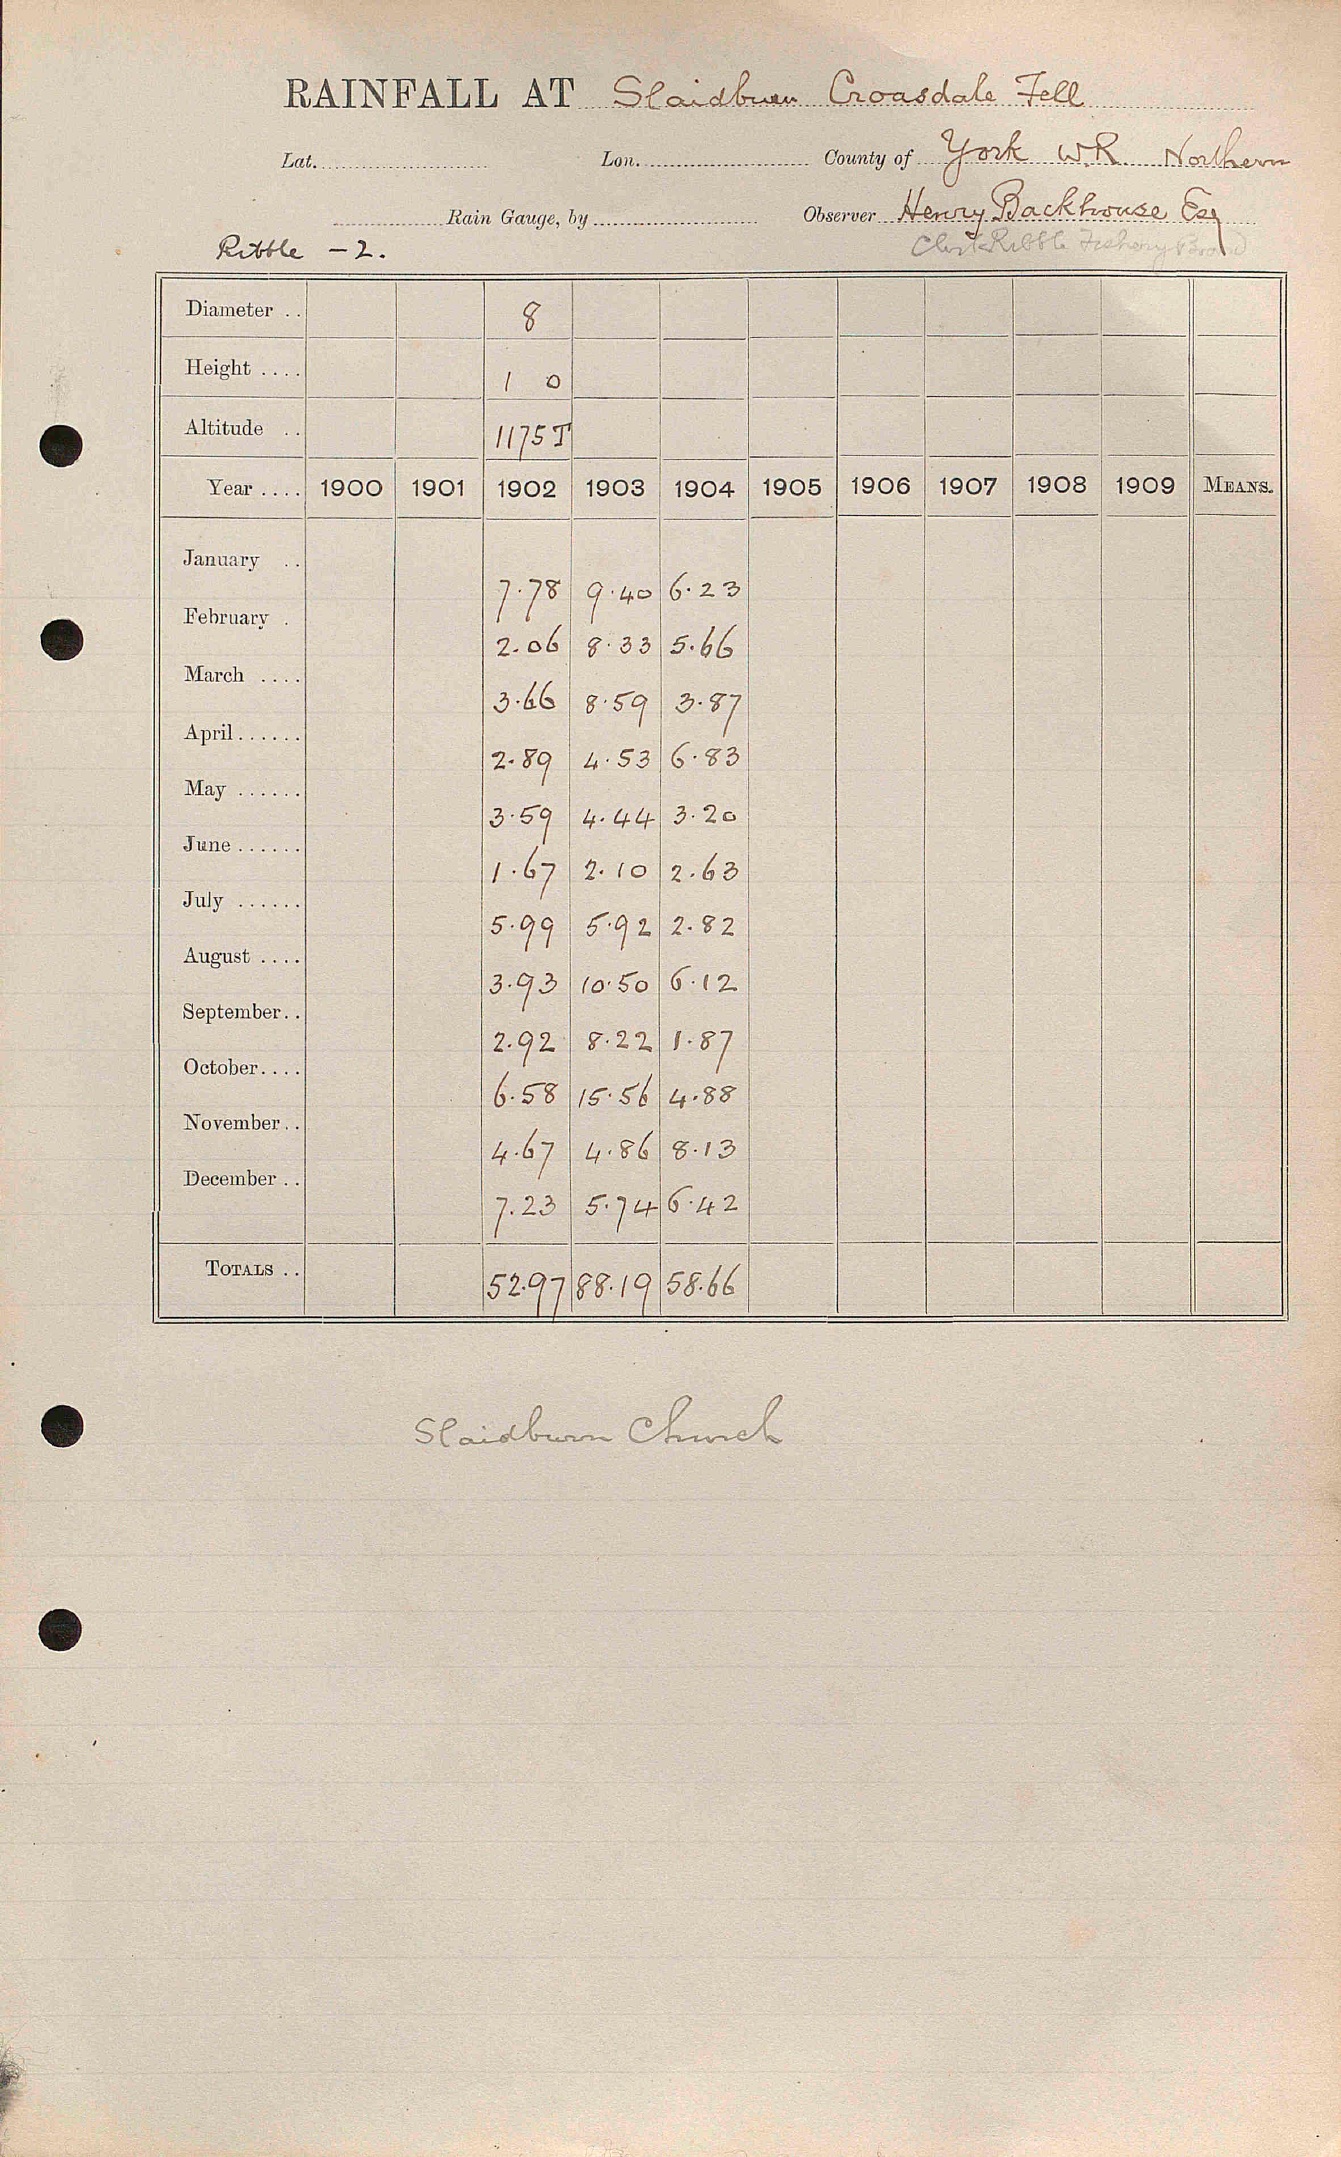 RAINFALL AT Slaidburn Croasdale Fell
Lat. Lon. County of York W.R. Northern
Rain Gauge, by Observer Henry Backhouse Esq
Ribble - 2. Clerk Ribble Fishery Board
Diameter .. 8
Height .... 1 0
Altitude .. 1175 T
Year .... 1900 1901 1902 1903 1904 1905 1906 1907 1908 1909 MEANS.
January .. 7.78 9.40 6.23
February . 2.06 8.33 5.66
March .... 3.66 8.59 3.87
April ...... 2.89 4.53 6.83
May ...... 3.59 4.44 3.20
June ...... 1.67 2.10 2.63
July ...... 5.99 5.92 2.82
August .... 3.93 10.50 6.12
September .. 2.92 8.22 1.87
October .... 6.58 15.56 4.88
November .. 4.67 4.86 8.13
December .. 7.23 5.74 6.42
TOTALS .. 52.97 88.19 58.66
Slaidburn Church